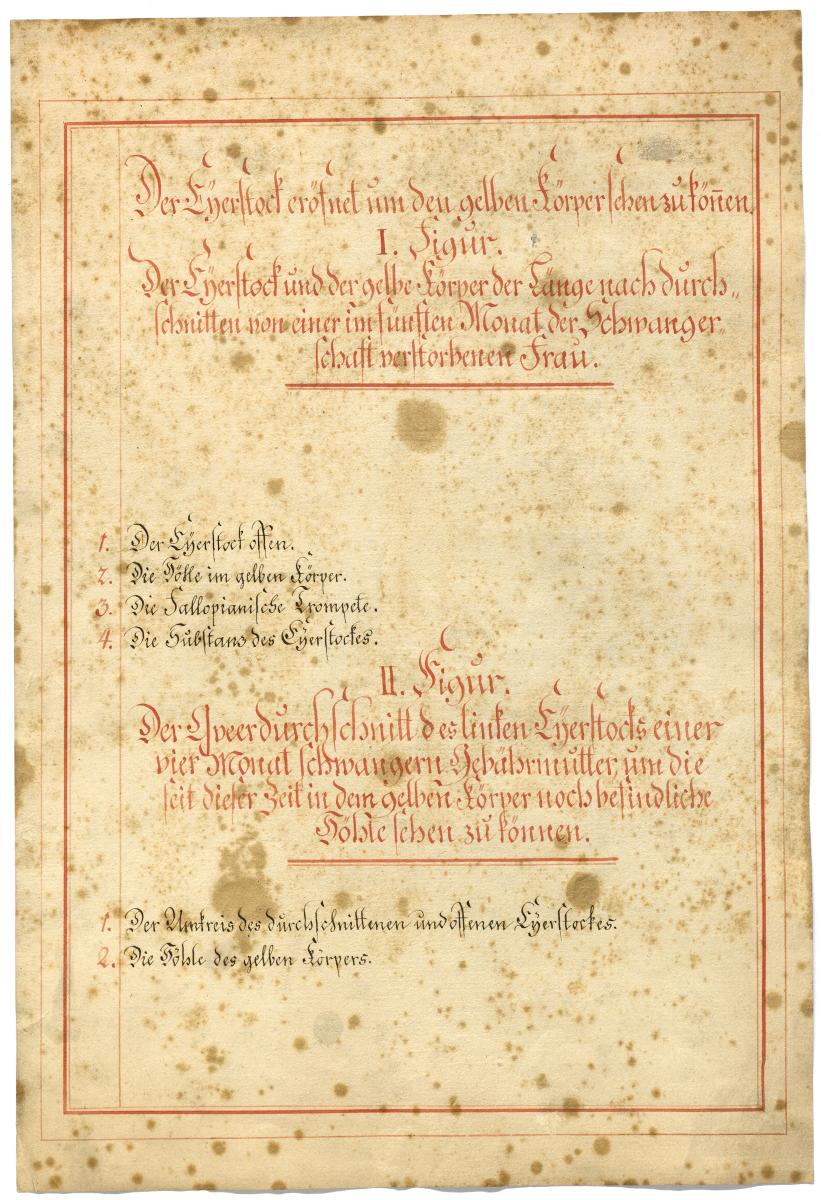 Der Eÿerstock eröfnet um den gelben Körper sehen zu kön̄en.
I. Figur.
Der Eÿerstock und der gelbe Körper der Länge nach durch„
schnitten von einer im fünften Monat der Schwanger„
schaft verstorbenen Frau.
1. Der Eÿerstock offen.
2. Die Höhle im gelben Körper.
3. Die Fallopianische Trompete.
4. Die Substanz des Eÿerstockes.
II. Figur.
Der Qveerdurchschnitt des linken Eÿerstocks einer
vier Monat schwangern Gebährmutter, um die
seit dieser Zeit in dem gelben Körper noch befindliche
Höhle sehen zu können.
1. Der Umkreis des durchschnittenen und offenen Eÿerstockes.
2. Die Höhle des gelben Körpers.